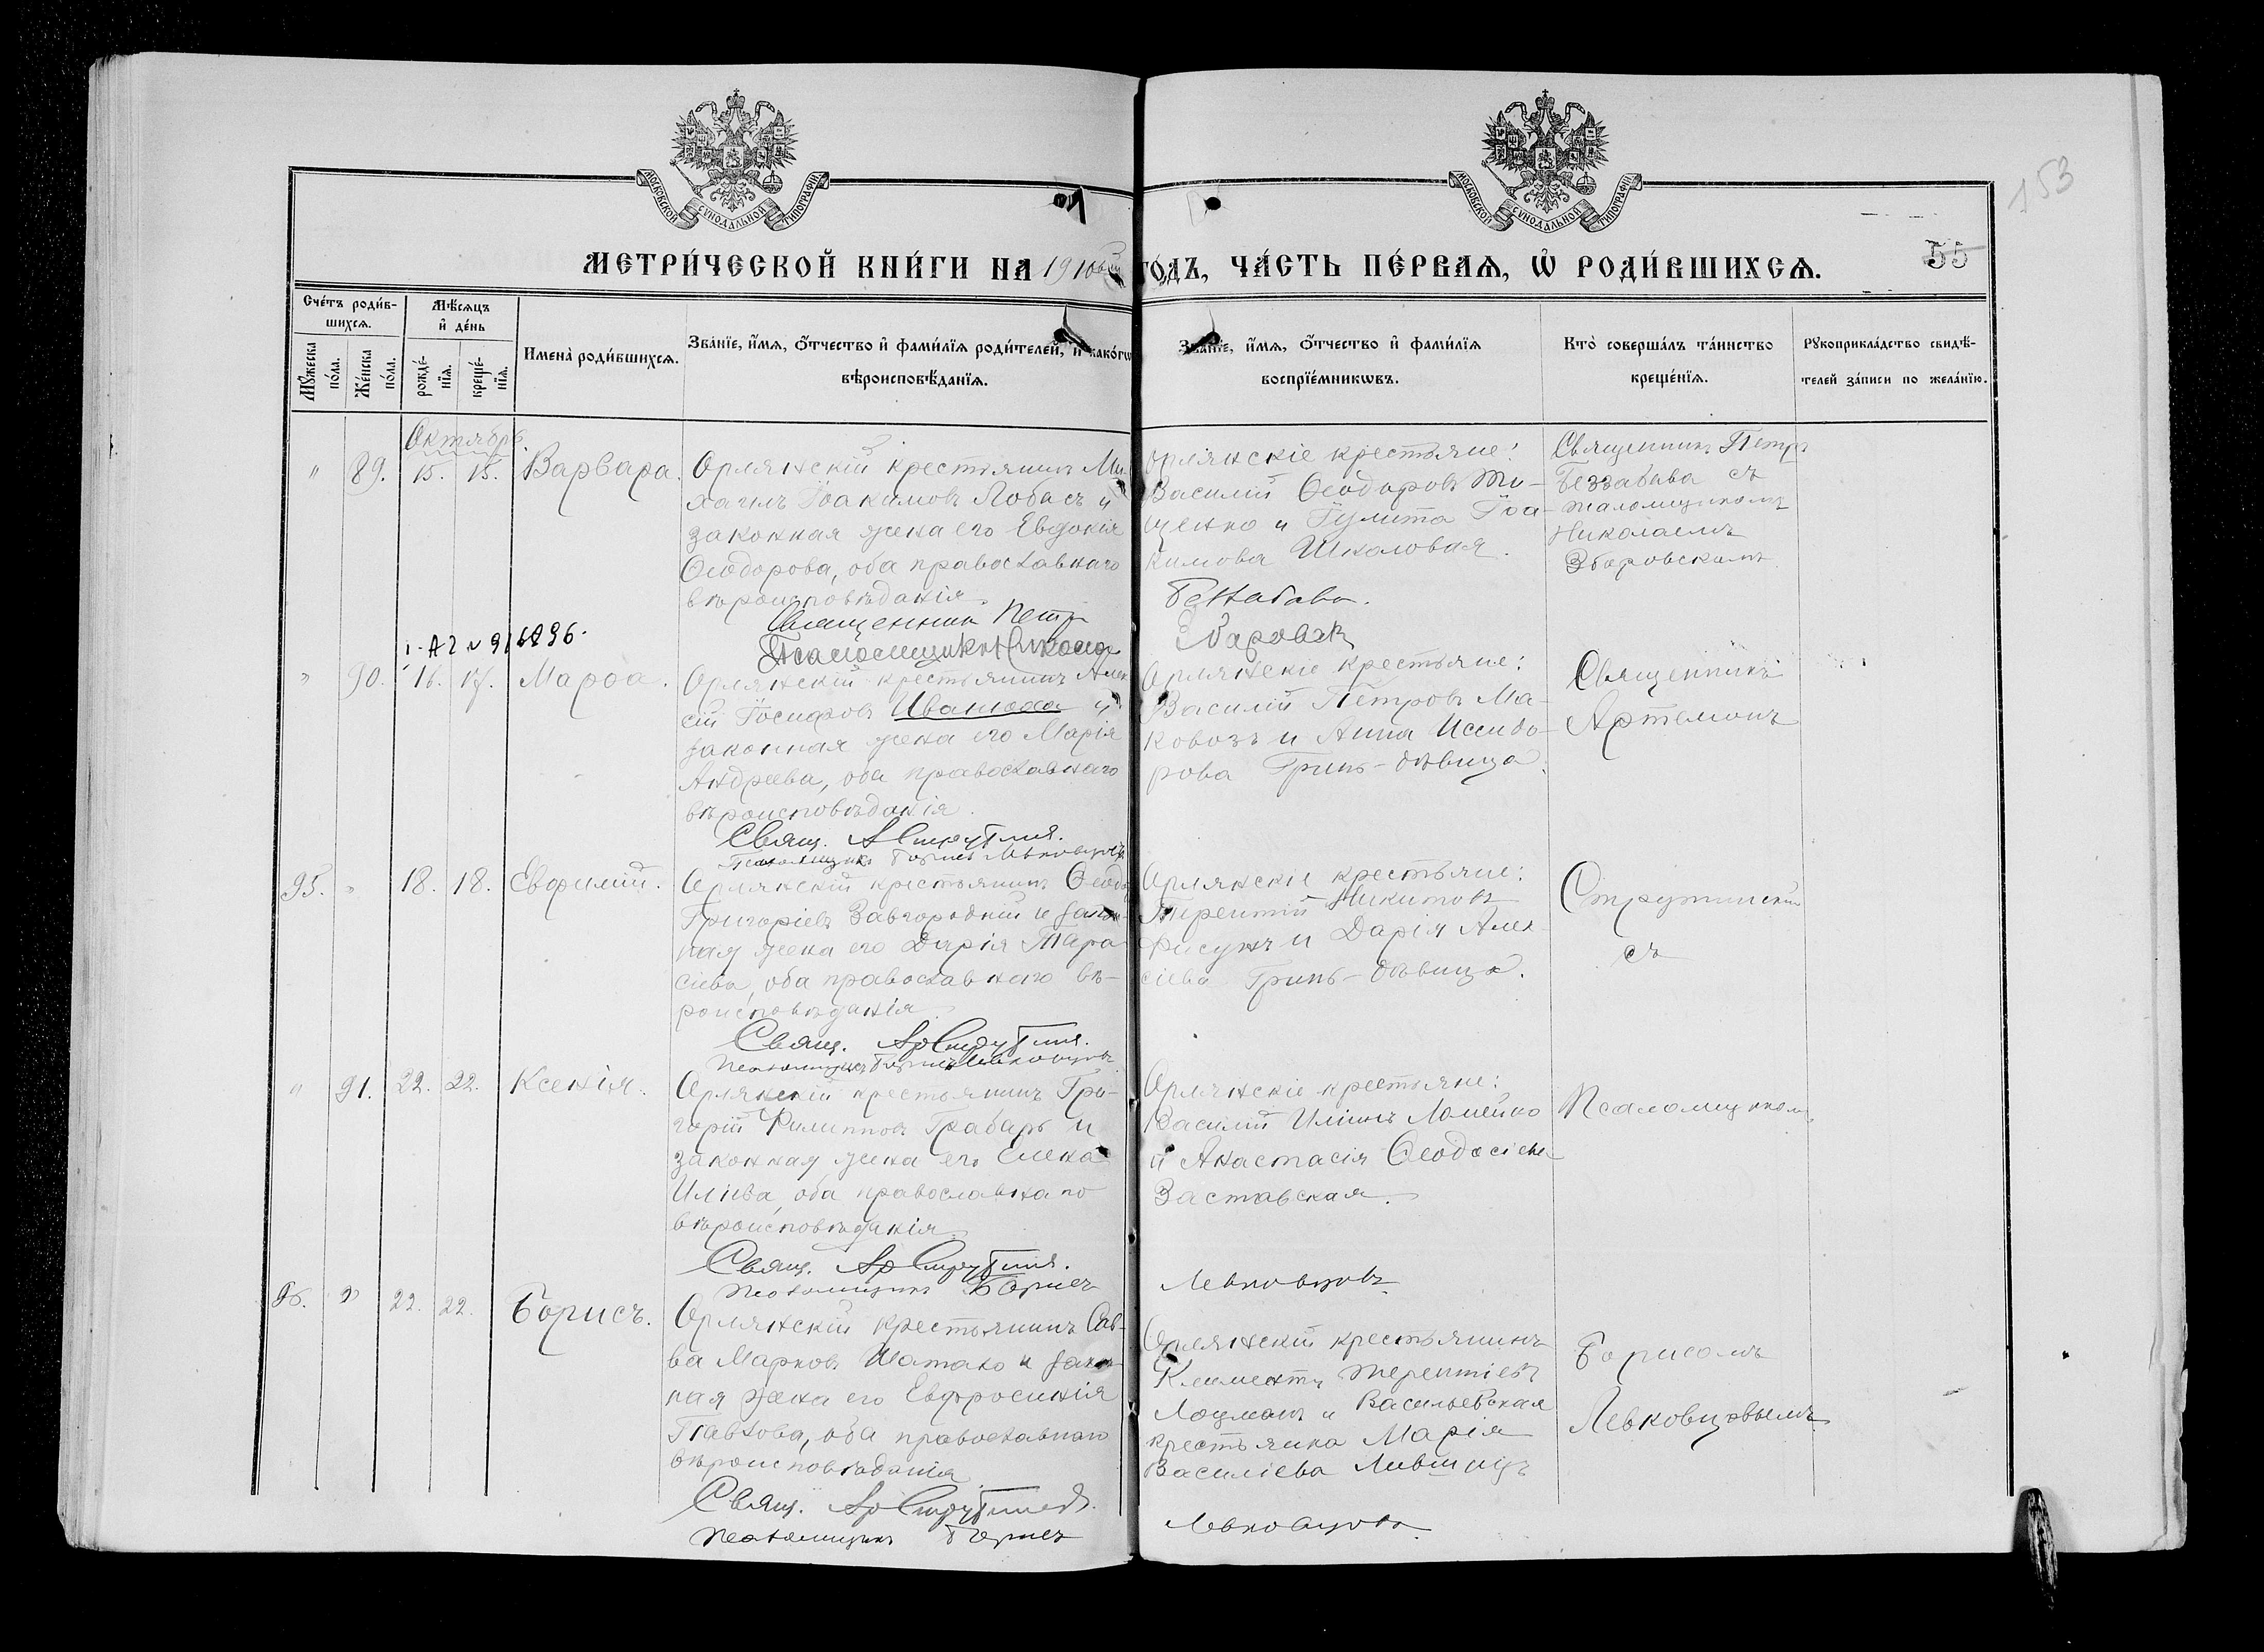 МОСКОВСКОЙ СУНОДАЛЬНОЙ ТИПОГРАФІИ
МОСКОВСКОЙ СУНОДАЛЬНОЙ ТИПОГРАФІИ
153
МЕТРИ́ЧЕСКОЙ КНИ́ГИ НА 1910
ГО́ДЪ, ЧА́СТЬ ПЕ́РВАЯ, Ѡ҆ РОДИ́ВШИХСЯ.
55
Сче́тъ роди́в-
шихся.
Мꙋ́жеска по́ла.
Же́нска по́ла.
Мѣ́сяцъ
и҆ де́нь
рожде́-
нїя.
креще́-
нїя.
Имена̀ роди́вшихся.
Зва́нїе, и҆́мя, ѻ҆́тчество и҆ фами́лїя роди́телей, и҆ како́гѡ
вѣроисповѣ́данїя.
Зва́нїе, и҆́мя, ѻ҆́тчество и҆ фами́лїя
воспрїе́мникѡвъ.
Кто̀ соверша́лъ та́инство
креще́нїя.
Рꙋкоприкла́дство свидѣ́-
телей за́писи по жела́нїю.
Октябрь.
" 89. 15. 15. Варвара.
Орлянскій крестьянинъ Ми-
хаилъ Іоакимовъ Лобасъ и
законная жена его Евдокія
Ѳеодорова, оба православнаго
вѣроисповѣданія.
Священникъ Петръ
Псаломщикъ Николай
Орлянскіе крестьяне:
Василій Ѳеодоровъ Ти-
щенко и Іулита Іоа-
кимова Школовая.
Беззабава.
Збаровск
Священникъ Петръ
Беззабава съ
псаломщикомъ
Николаемъ
Збаровскимъ
" 90. 16. 17. Марѳа.
Орлянскій крестьянинъ Алек
сій Іосифовъ Иванюха и
законная жена его Марія
Андреева, оба православнаго
вѣроисповѣданія.
Свящ. А Струтин.
Псаломщикъ Борисъ Левковцовъ
Орлянскіе крестьяне:
Василій Петровъ Ма-
ковозъ и Анна Исидо-
рова Гринь-дѣвица.
Священникъ
Артемонъ
95. " 18. 18. Евфимій.
Орлянскій крестьянинъ Ѳеодо
Григоріевъ Завгородній и закон-
ная жена его Дарія Тара
сіева, оба православнаго вѣ-
роисповѣданія.
Свящ. Ар Струтин.
Псаломщикъ Борисъ Левковцовъ
Орлянскіе крестьяне:
Терентій Никитовъ
Фисунъ и Дарія Алек
сіева Гринь-дѣвица.
Струтинскій
съ
" 91. 22. 22. Ксенія.
Орлянскій крестьянинъ Гри-
горій Филипповъ Грабарь и
законная жена его Елена
Иліева, оба православнаго
вѣроисповѣданія.
Свящ. Ар Струтин.
Псаломщикъ Борисъ
Орлянскіе крестьяне:
Василій Иліинъ Ломейко
и Анастасія Ѳеодосіева
Заставская.
Левковцовъ.
Псаломщикомъ
96. " 22. 22. Борисъ.
Орлянскій крестьянинъ Сав-
ва Марковъ Шатало и закон-
ная жена его Евфросинія
Павлова, оба православнаго
вѣроисповѣданія.
Свящ. Ар Струтин.
Псаломщикъ Борисъ
Орлянскій крестьянинъ
Климентъ Терентіевъ
Лоцманъ и Васильевская
крестьянка Марія
Василіева
Левковцовъ.
Борисомъ
Левковцовымъ.